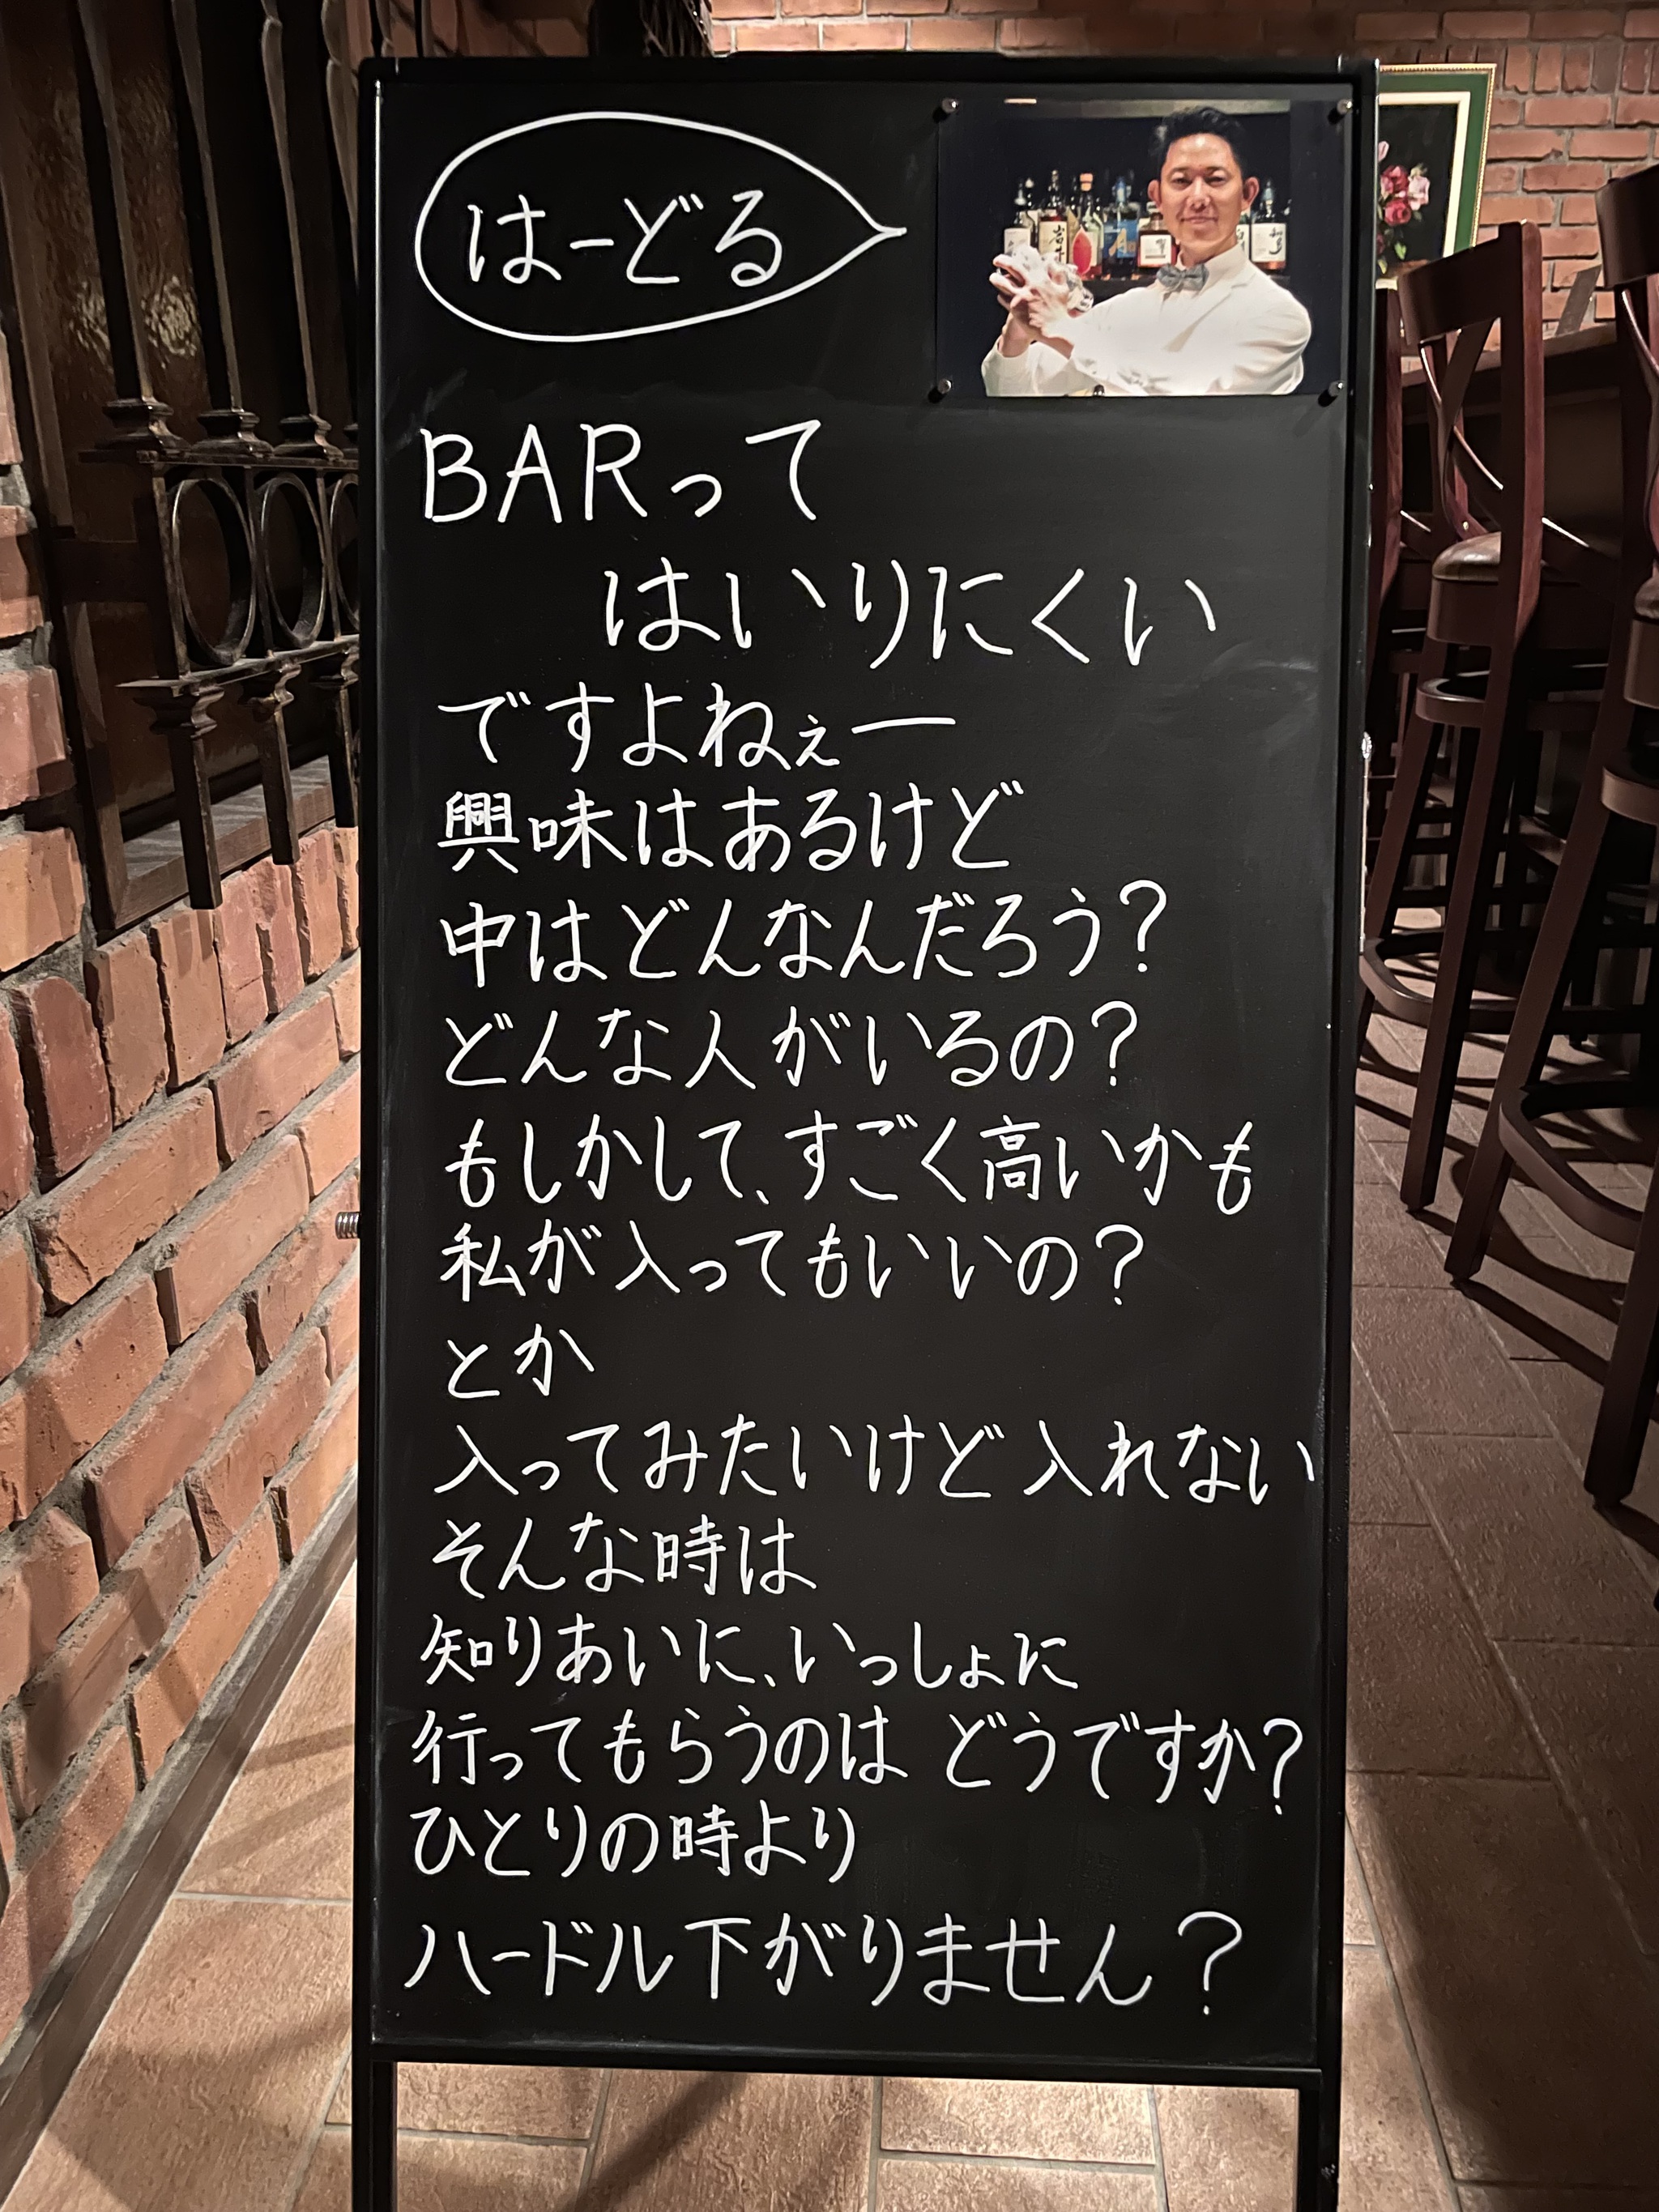 はーどる
BARって
はいりにくい
ですよねぇー
興味はあるけど
中はどんなんだろう?
どんな人がいるの?
もしかして、すごく高いかも
私が入ってもいいの?
とか
入ってみたいけど入れない
そんな時は
知りあいに、いっしょに
行ってもらうのは どうですか?
ひとりの時より
ハードル下がりません?